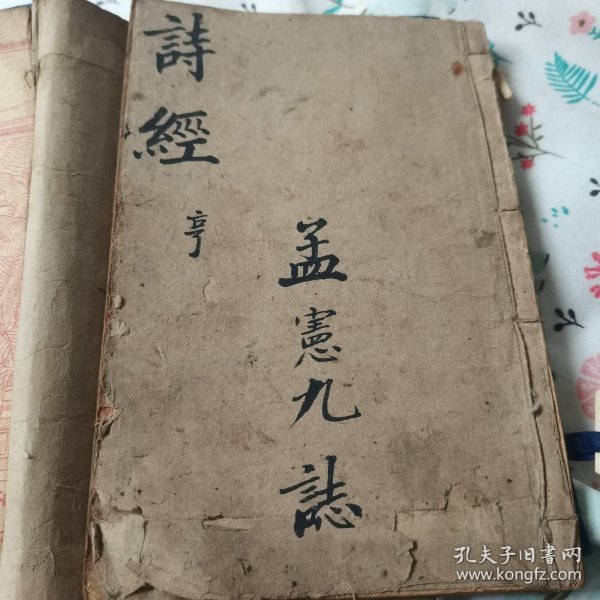 詩經
亨
孟憲九誌
孔夫子旧书网
www.kongfz.com